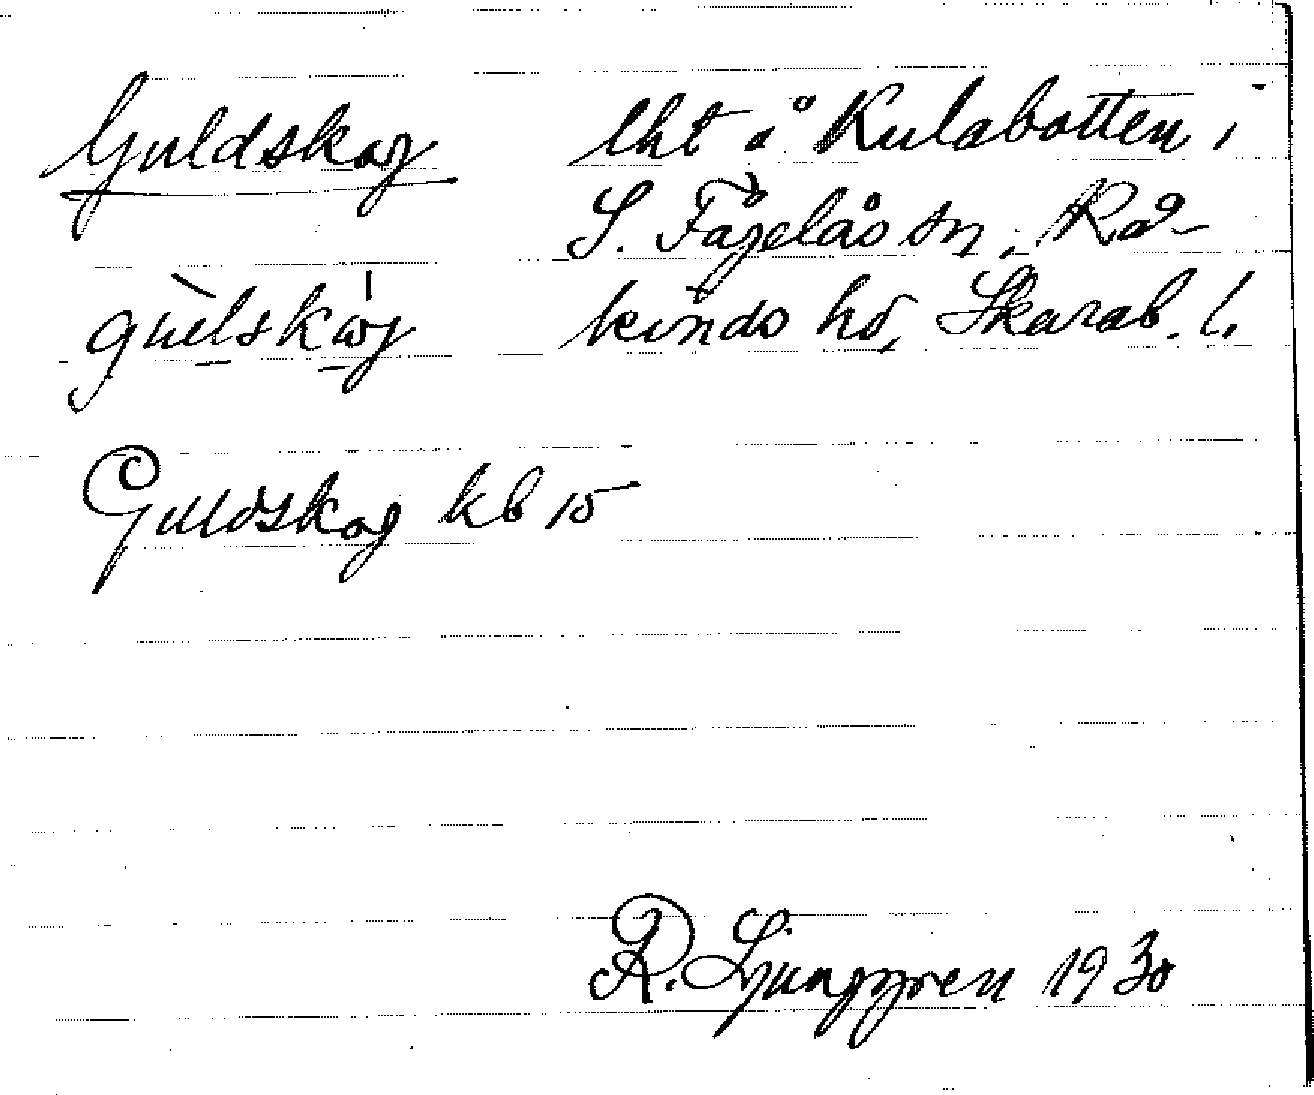 Guldskog lht å Kulabotten i
S. Fågelås sn, Rå-
gùlskó̱g kinds hd, Skarab. l.
Guldskog kb 15
R. Ljunggren 1930